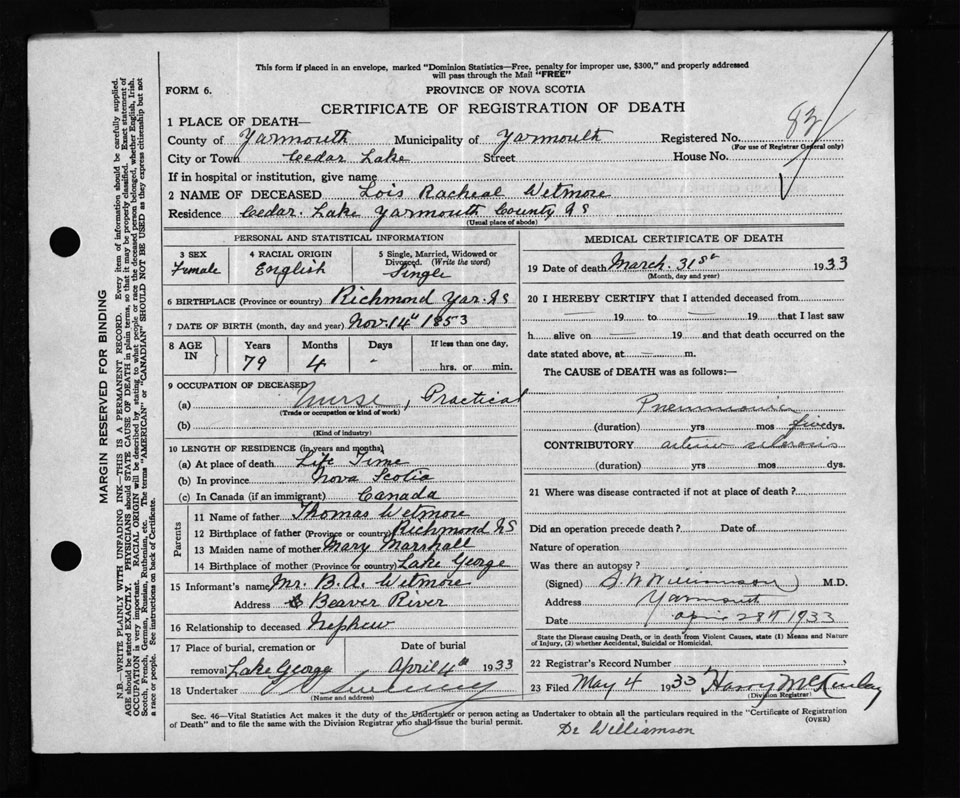 This form if placed in an envelope, marked "Dominion Statistics—Free, penalty for improper use, $300," and properly addressed
will pass through the Mail "FREE"
FORM 6.
PROVINCE OF NOVA SCOTIA
CERTIFICATE OF REGISTRATION OF DEATH
1 PLACE OF DEATH—
County of Yarmouth Municipality of Yarmouth Registered No. 83
(For use of Registrar General only)
City or Town Cedar Lake Street House No.
If in hospital or institution, give name
2 NAME OF DECEASED Lois Racheal Wetmore
Residence Cedar Lake Yarmouth County NS
(Usual place of abode)
PERSONAL AND STATISTICAL INFORMATION
3 SEX 4 RACIAL ORIGIN 5 Single, Married, Widowed or
Divorced. (Write the word)
Female English Single
6 BIRTHPLACE (Province or country) Richmond Yar. NS
7 DATE OF BIRTH (month, day and year) Nov. 14th 1853
8 AGE IN Years Months Days If less than one day,
79 4 - hrs. or min.
9 OCCUPATION OF DECEASED
(a) Nurse, Practical
(Trade or occupation or kind of work)
(b)
(Kind of industry)
10 LENGTH OF RESIDENCE (in years and months)
(a) At place of death Life Time
(b) In province Nova Scotia
(c) In Canada (if an immigrant) Canada
Parents
11 Name of father Thomas Wetmore
12 Birthplace of father (Province or country) Richmond NS
13 Maiden name of mother Mary Marshall
14 Birthplace of mother (Province or country) Lake George
15 Informant's name Mr. B. A. Wetmore
Address Beaver River
16 Relationship to deceased Nephew
17 Place of burial, cremation or Date of burial
removal Lake George April 4th 1933
18 Undertaker Sweeney
(Name and address)
MEDICAL CERTIFICATE OF DEATH
19 Date of death March 31st 1933
(Month, day and year)
20 I HEREBY CERTIFY that I attended deceased from
— 19 to — 19 that I last saw
h alive on — 19 and that death occurred on the
date stated above, at — m.
The CAUSE of DEATH was as follows:—
Pneumonia
(duration) yrs mos five dys.
CONTRIBUTORY arterio sclerosis
(duration) yrs mos dys.
21 Where was disease contracted if not at place of death?
Did an operation precede death? Date of
Nature of operation
Was there an autopsy?
(Signed) S. W. Williamson M.D.
Address Yarmouth
Date April 28th 1933
State the Disease causing Death, or in death from Violent Causes, state (1) Means and Nature
of Injury, (2) whether Accidental, Suicidal or Homicidal.
22 Registrar's Record Number
23 Filed May 4 1933 Harry McKinlay
(Division Registrar)
Sec. 46—Vital Statistics Act makes it the duty of the Undertaker or person acting as Undertaker to obtain all the particulars required in the "Certificate of Registration
of Death" and to file the same with the Division Registrar who shall issue the burial permit. (OVER)
Dr Williamson
MARGIN RESERVED FOR BINDING
N.B.—WRITE PLAINLY WITH UNFADING INK—THIS IS A PERMANENT RECORD. Every item of information should be carefully supplied.
AGE should be stated EXACTLY. PHYSICIANS should STATE CAUSE OF DEATH in plain terms, so that it may be properly classified. Exact statement of
OCCUPATION is very important. RACIAL ORIGIN will be described by stating to what people or race the deceased person belonged, whether English, Irish,
Scotch, French, German, Russian, Ruthenian, etc. The terms "AMERICAN" or "CANADIAN" SHOULD NOT BE USED as they express citizenship but not
a race or people. See instructions on back of Certificate.